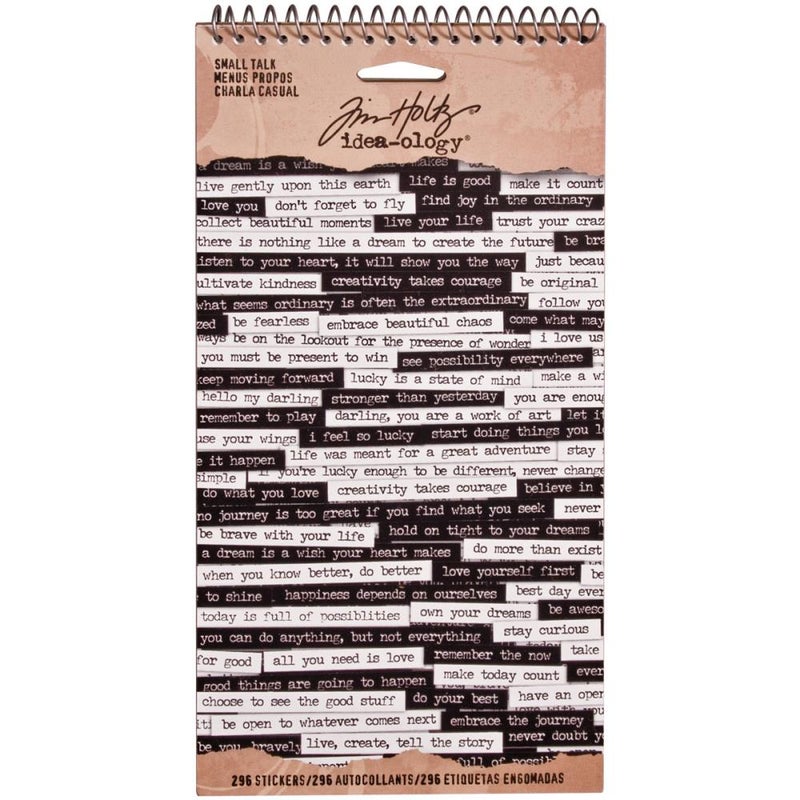 SMALL TALK
MENUS PROPOS
CHARLA CASUAL
Tim Holtz
idea-ology®
a dream is a wish your heart makes
live gently upon this earth life is good make it count
love you don't forget to fly find joy in the ordinary
collect beautiful moments live your life trust your craz
there is nothing like a dream to create the future be bra
isten to your heart, it will show you the way just becau
ultivate kindness creativity takes courage be original
what seems ordinary is often the extraordinary follow you
zed be fearless embrace beautiful chaos come what may
ways be on the lookout for the presence of wonder i love us
you must be present to win see possibility everywhere
keep moving forward lucky is a state of mind make a wi
hello my darling stronger than yesterday you are enoug
remember to play darling, you are a work of art let it
use your wings i feel so lucky start doing things you lo
e it happen life was meant for a great adventure stay
simple if you're lucky enough to be different, never change
do what you love creativity takes courage believe in y
no journey is too great if you find what you seek never
be brave with your life hold on tight to your dreams
a dream is a wish your heart makes do more than exist
when you know better, do better love yourself first be
to shine happiness depends on ourselves best day ever
today is full of possiblities own your dreams be aweso
you can do anything, but not everything stay curious
for good all you need is love remember the now take
good things are going to happen make today count ever
choose to see the good stuff do your best have an open
it: be open to whatever comes next embrace the journey
be you bravely live, create, tell the story never doubt yo
full of possib
296 STICKERS/296 AUTOCOLLANTS/296 ETIQUETAS ENGOMADAS